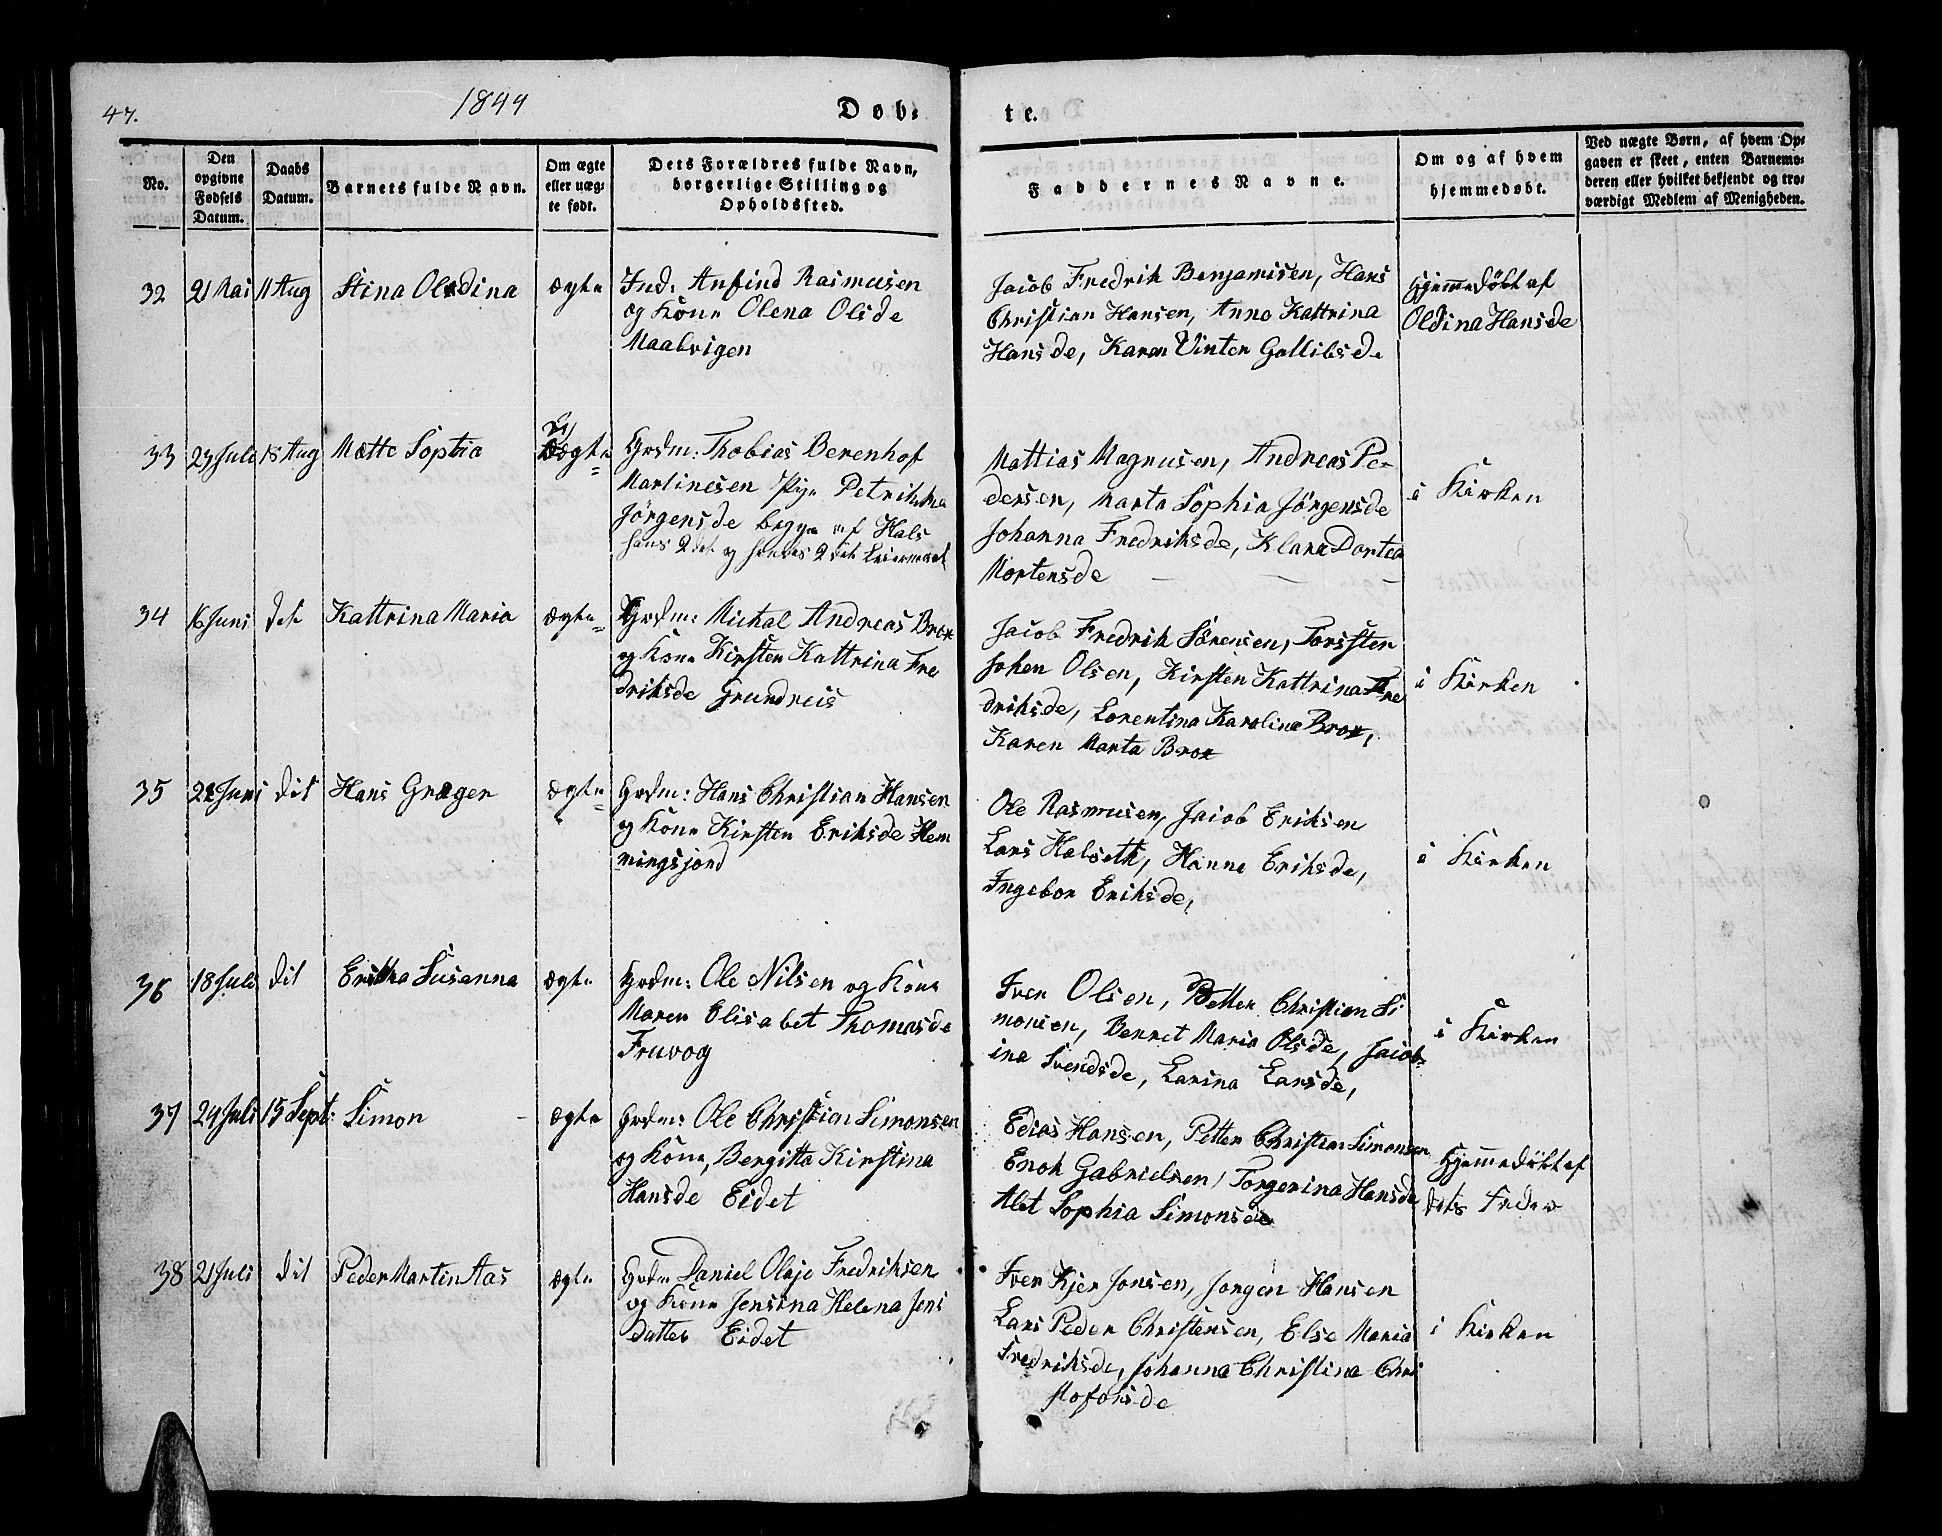 47.
1844
Døb-
te.
No.
Den opgivne Fødsels Datum.
Daabs Datum.
Barnets fulde Navn.
Om ægte eller uæg-te født.
Dets Forældres fulde Navn, borgerlige Stilling og Opholdssted.
Faddernes Navne.
Om og af hvem hjemmedøbt.
Ved uægte Børn, af hvem Op-
gaven er skeet, enten Barnemo-
deren eller hvilket bekjendt og tro-
værdigt Medlem af Menigheden.
32 21 Mai 11 Aug Stina Oldina ægte Ind: Anfind Rasmusen
og Kone Olena Olsde
Maalvigen
Jacob Fredrik Benjamisen, Hans
Christian Hansen, Anne Kattrina
Hansde, Karen Vinter Gallibsde
Hjemmedöbt af
Oldina Hansde
33 23 Juli 18 Aug Mette Sophia Uægte Grdm: Thobias Berenhof
Martinesen Pige Petrikka
Jörgensde begge af Hals
hans 2det og hendes 2det Leiermaal
Mattias Magnusen, Andreas Pe-
dersen, Marta Sophia Jörgensde
Johanna Fredriksde, Klara Dortea
Mortensde
i Kirken
34 16 Juni dit Kattrina Maria ægte Grdm: Mickal Andreas Brox
og Kone Kirsten Kattrina Fre
driksde Grundreis
Jacob Fredrik Sörensen, Torssten
Johan Olsen, Kirsten Kattrina Fre
driksde, Lorentina Karoline Brox,
Karen Marta Brox
i Kirken
35 22 Juni dit Hans Græger ægte Grdm: Hans Christian Hansen
og Kone Kirsten Eriksde Hem
mingsjord
Ole Rasmusen, Jacob Eriksen
Lars Halseth, Hanne Eriksde,
Ingebor Eriksde,
i Kirken
36 18 Juli dit Erikka Susanna ægte Grdm: Ole Nilsen og Kone
Maren Elisabet Thomasde
Fruvog
Iver Olsen, Petter Christian Si
monsen, Berret Maria Olsde, Jacob-
ina Svendsde, Larina Larsde,
i Kirken
37 24 Juli 15 Sept: Simon ægte Grdm: Ole Christian Simonsen
og Kone, Bergitta Kirstina
Hansde Eidet
Edias Hansen, Petter Christian Simonsen
Enok Gabrielsen, Torgerina Hansde
Alet Sophia Simonsde
Hjemmedöbt af
dets Fader
38 21 Juli dit Peder Martin Aas ægte Grdm Daniel Olaje Fredriksen
og Kone Jensina Helena Jens
datter Eidet
Iver Kjer Jonsen, Jorgen Hansen
Lars Peder Christensen, Else Maria
Fredriksde, Johanna Christina Chri
stoforsde
i Kirken